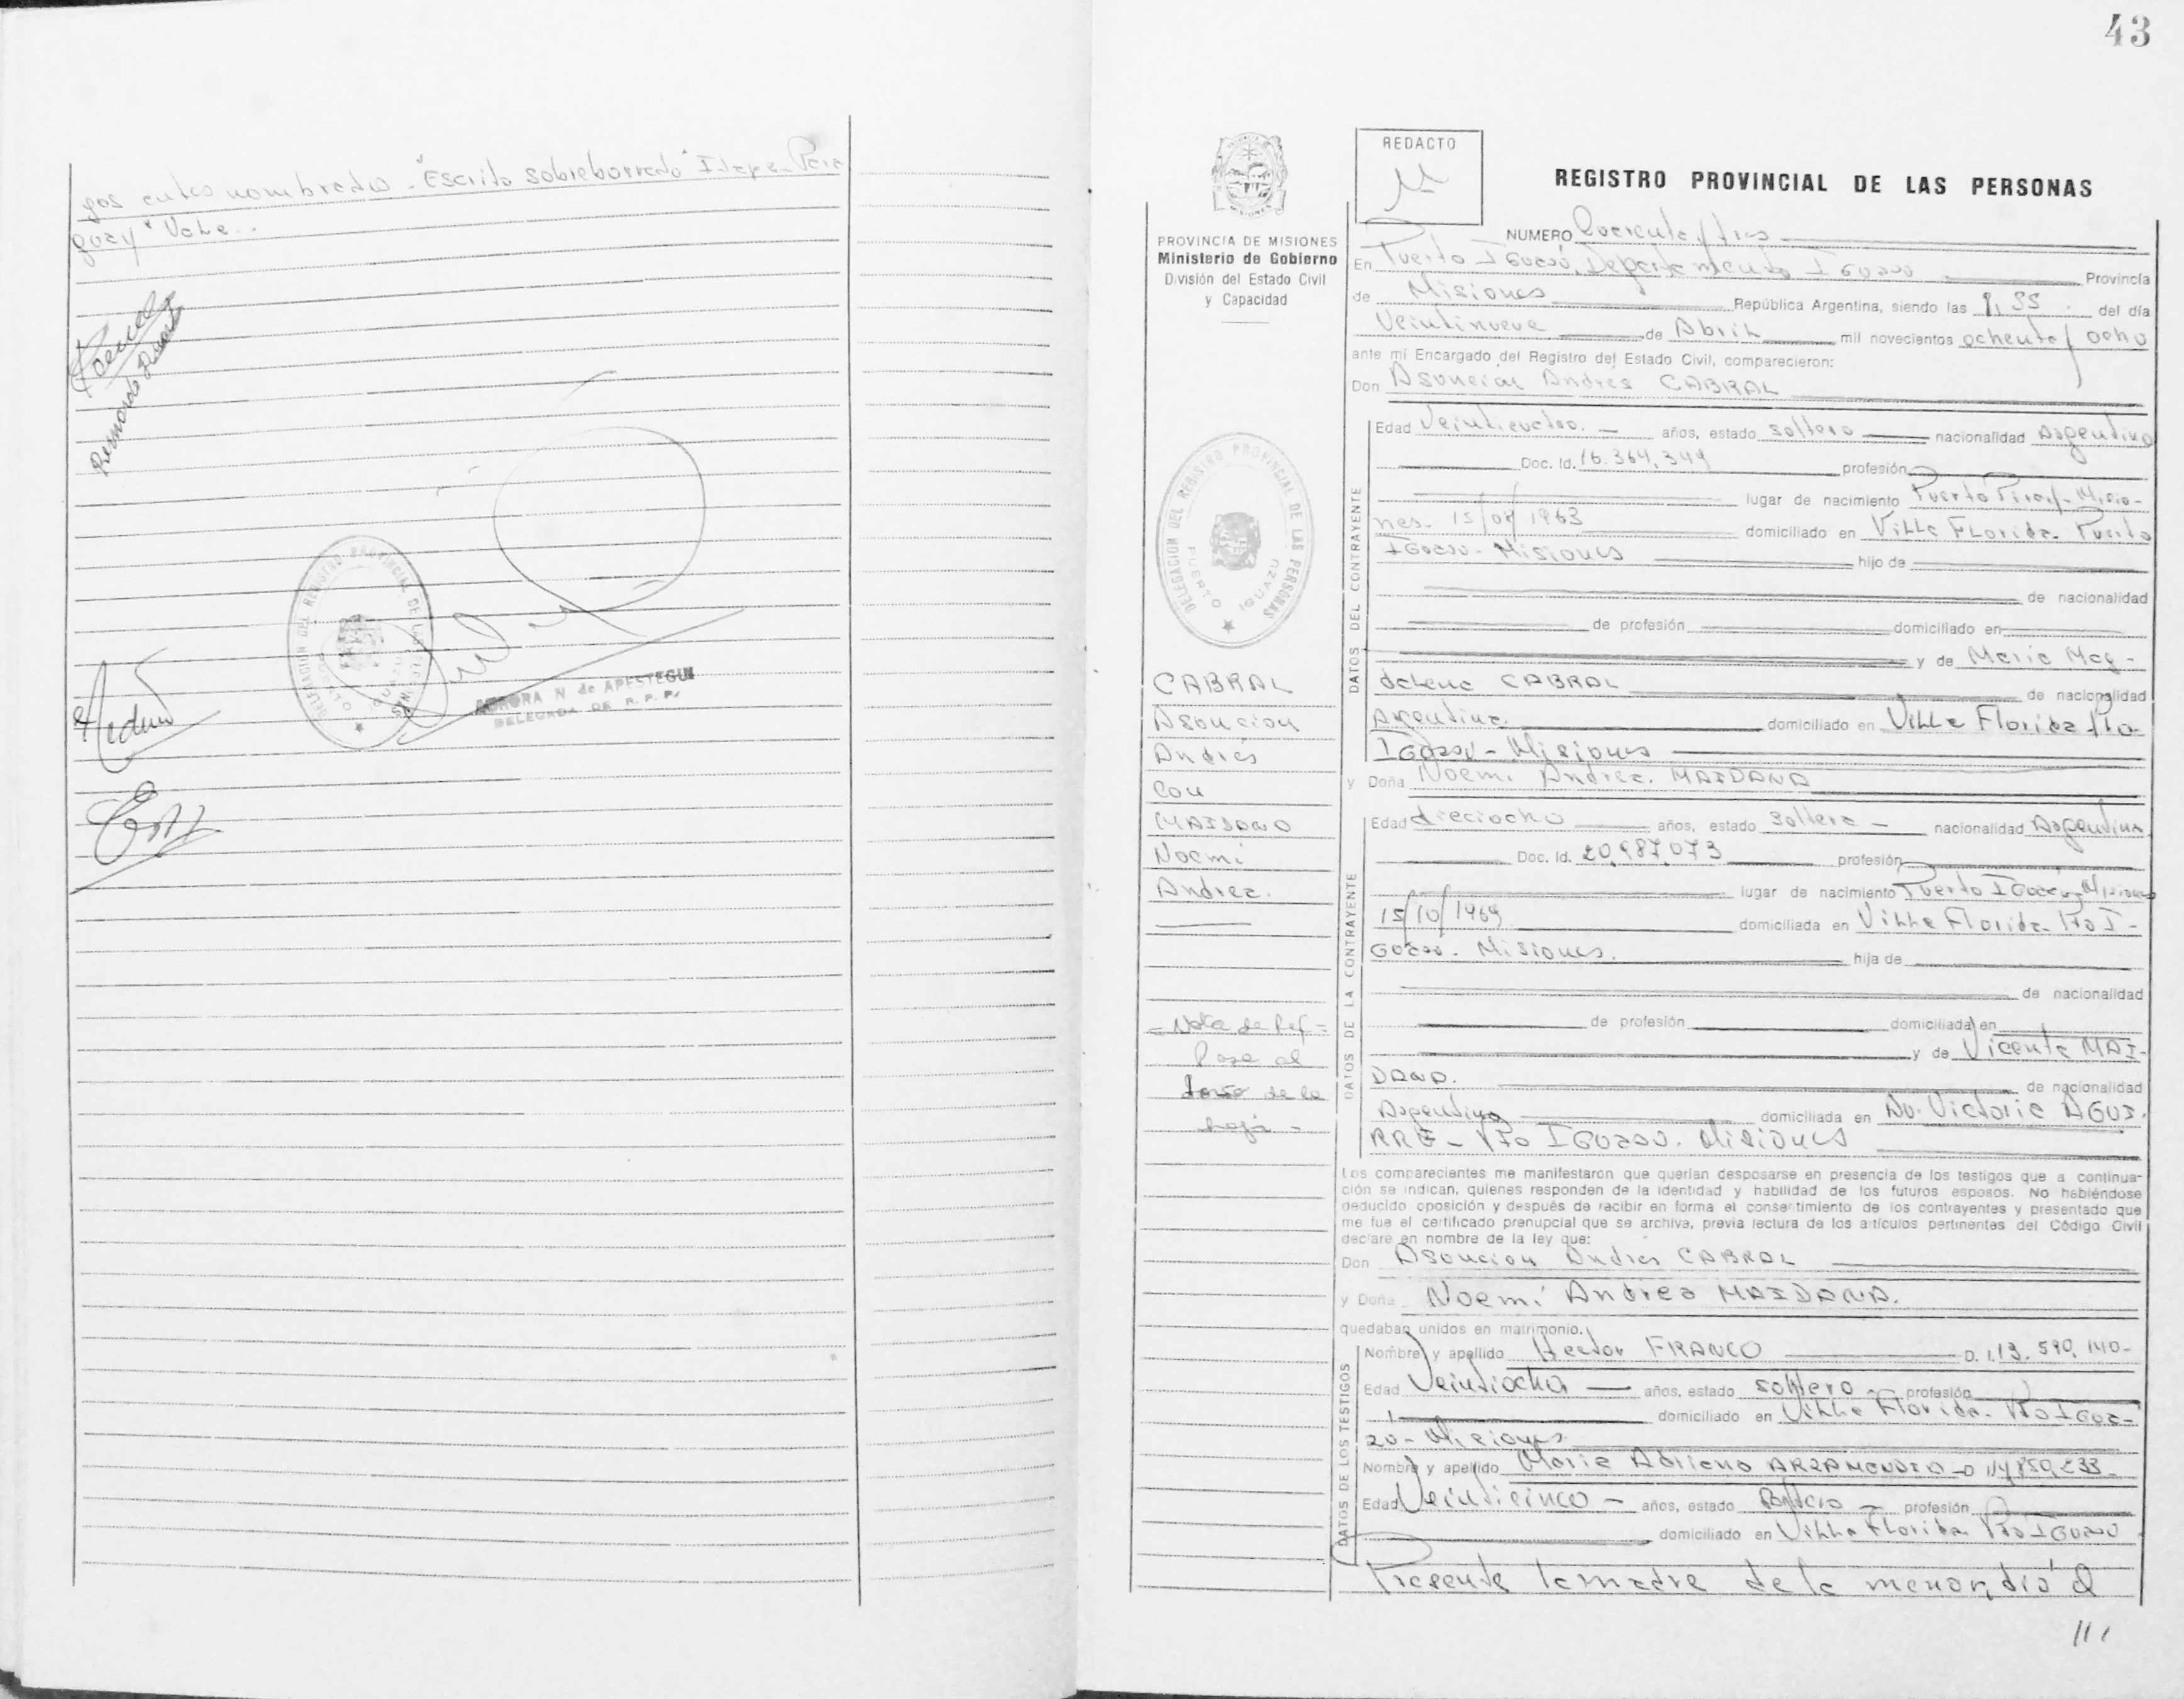 gos antes nombrados. "Escrito sobreborrado" Itape - Para
guay" Vale..
DELEGACION DEL REGISTRO PROVINCIAL DE LAS PERSONAS
AURORA N de APESTEGUI
DELEGADA DE R. P. P.
43
REDACTO
REGISTRO PROVINCIAL DE LAS PERSONAS
PROVINCIA DE MISIONES
Ministerio de Gobierno
División del Estado Civil
y Capacidad
DELEGACION DEL REGISTRO PROVINCIAL DE LAS PERSONAS
PUERTO IGUAZU
CABRAL
Asuncion
Andrés
con
MAIDANA
Noemi
Andrea.
- Nota de Ref -
Pase al
dorso de la
hoja -
NUMERO Cuarenta y tres
En Puerto Iguazú, Departamento Iguazú Provincia
de Misiones República Argentina, siendo las del día
Veintinueve de Abril mil novecientos ochenta y ocho
ante mi Encargado del Registro del Estado Civil, comparecieron:
Don Asunción Andrés CABRAL
DATOS DEL CONTRAYENTE
Edad Veinticuatro. años, estado soltero nacionalidad Argentina
Doc. Id. 16.364.349 profesión
lugar de nacimiento Puerto Piray - Misio-
nes. 15/08/1963 domiciliado en Villa Florida. Puerto
Iguazú. Misiones hijo de
de nacionalidad
de profesión domiciliado en
y de Maria Mag-
dalena CABRAL de nacionalidad
Argentina. domiciliado en Villa Florida Pto
Iguazú - Misiones
y Doña Noemi Andrea. MAIDANA
DATOS DE LA CONTRAYENTE
Edad dieciocho años, estado soltera - nacionalidad Argentina
Doc. Id. 20.987.073 profesión
lugar de nacimiento Puerto Iguazú Misiones
15/10/1969 domiciliada en Villa Florida Pto I-
guazú. Misiones. hija de
de nacionalidad
de profesión domiciliada en
y de Vicenta MAI-
DANA. de nacionalidad
Argentina domiciliada en Av. Victoria AGUI.
RRE - Pto Iguazú. Misiones
Los comparecientes me manifestaron que querían desposarse en presencia de los testigos que a continua-
ción se indican, quienes responden de la identidad y habilidad de los futuros esposos. No habiéndose
deducido oposición y después de recibir en forma el consentimiento de los contrayentes y presentado que
me fue el certificado prenupcial que se archiva, previa lectura de los artículos pertinentes del Código Civil
declaré en nombre de la ley que:
Don Asuncion Andres CABRAL
y Doña Noemi Andrea MAIDANA.
quedaban unidos en matrimonio.
DATOS DE LOS TESTIGOS
Nombre y apellido Hector FRANCO D. I. 13. 590. 140-
Edad Veintiocho años, estado soltero - profesión
domiciliado en Villa Florida. Pto Igua-
zú - Misiones
Nombre y apellido Maria Adriana ARZAMENDIA - D 14.850.233-
Edad Veinticinco - años, estado soltera - profesión
domiciliado en Villa Florida Pto Iguazú
Presente la madre de la menor, dió a
///